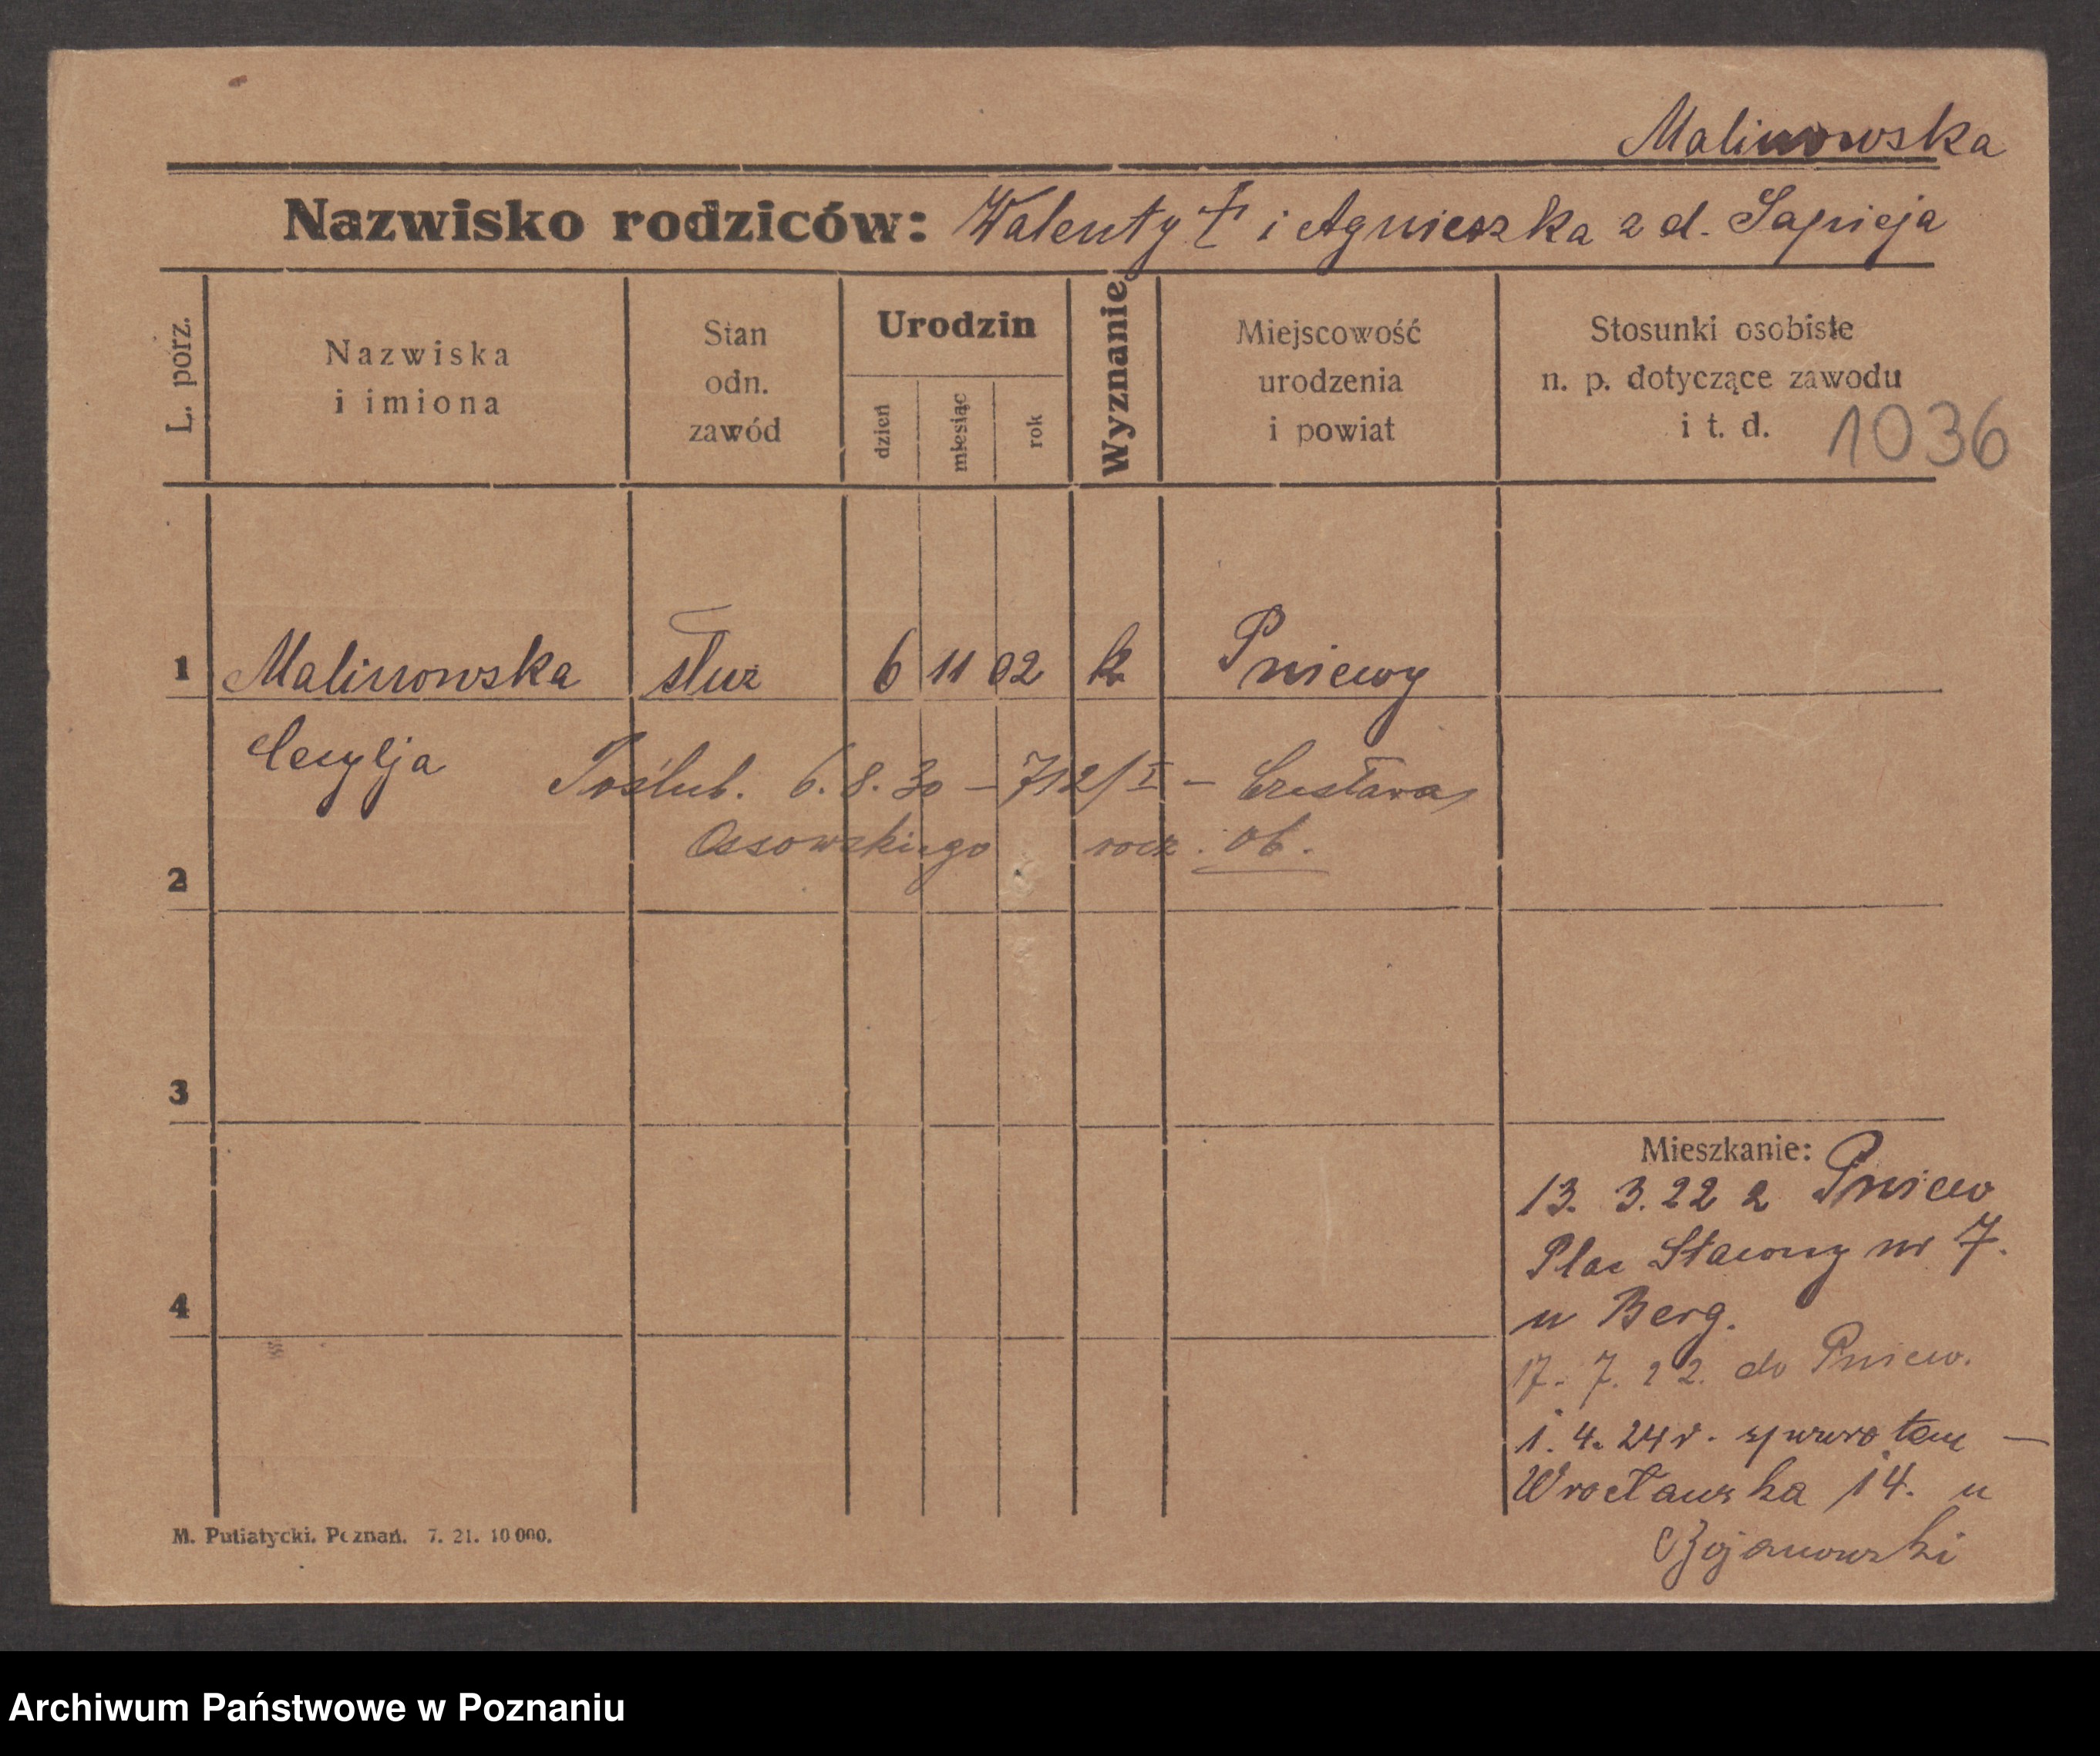 Malinowska
Nazwisko rodziców: Walenty † i Agnieszka z d. Sapieja
L. porz.
Nazwiska
i imiona
Stan
odn.
zawód
Urodzin
dzień
miesiąc
rok
Wyznanie
Miejscowość
urodzenia
i powiat
Stosunki osobiste
n. p. dotyczące zawodu
i t. d.
1036
1 Malinowska służ 6 11 02 k Pniewy
Cecylja
Poślub. 6.8.30 – 712/I – Czesława
Ossowskiego rocz. 06.
2
3
4
Mieszkanie:
13. 3. 22 z Pniew
Plac Stawny nr 7.
u Berg.
17. 7. 22. do Pniew.
1. 4. 24 r. zpowrotem –
Wrocławska 14. u
Bojanowski
M. Putiatycki. Poznań. 7. 21. 10 000.
Archiwum Państwowe w Poznaniu